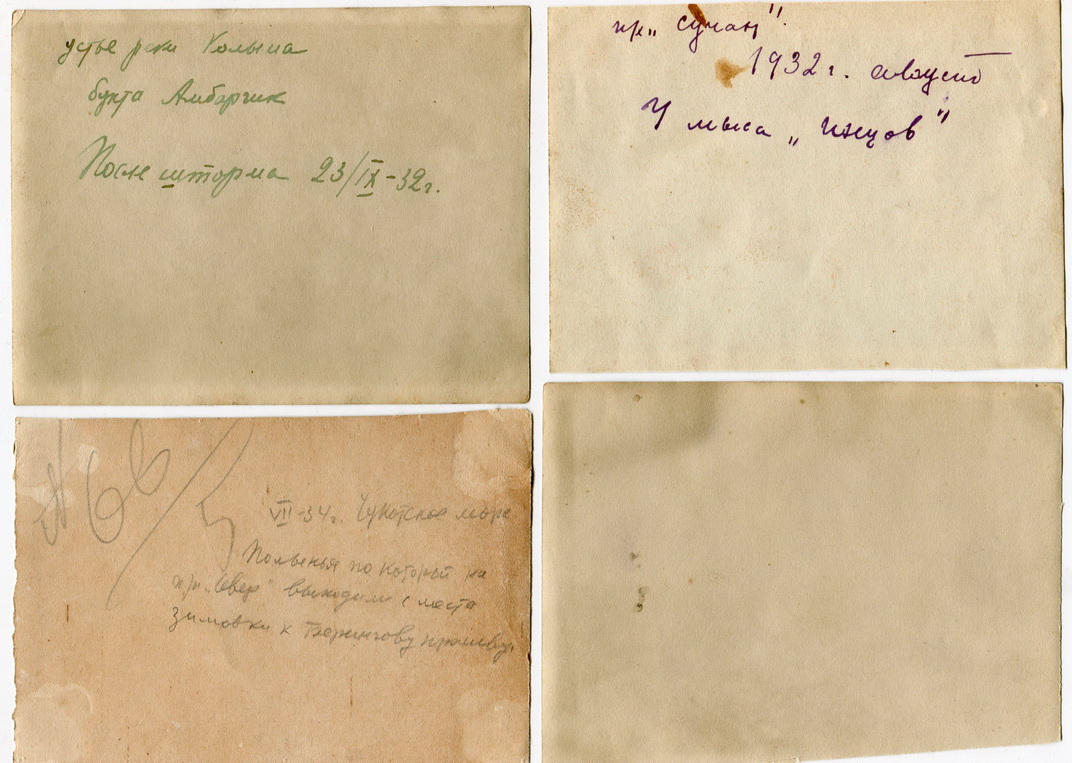 устье реки Колыма
бухта Амбарчик
После шторма 23/IX-32г.
п/х „Сучан".
1932 г. август
У мыса „
VII-34г. Чукотское море
Полынья по которой на
п/х. „Север" выходили с места
зимовки к Берингову проливу.